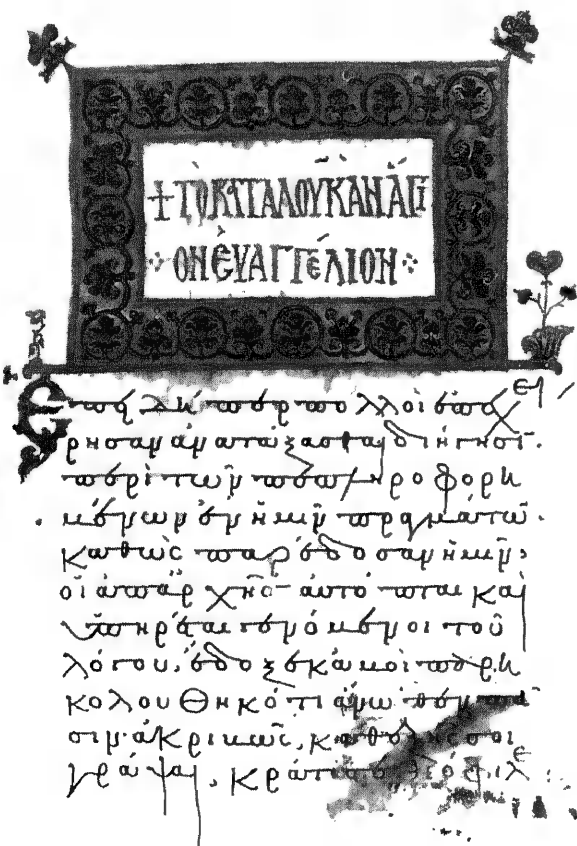 + ΤῸ ΚΑΤΑ ΛΟΥΚᾺΝ ἍΓΙ
ΟΝ ἘΥΑΓΓΈΛΙΟΝ
Ἐπειδήπερ πολλοὶ ἐπεχει
ρησαν ἀνατάξασθαι διήγησι
περὶ τῶν πεπληροφορη
μένων ἐν ἡμῖν πραγμάτω
καθὼς παρέδοσαν ἡμῖν·
οἱ ἀπαρχῆς αὐτόπται καὶ
ὑπηρέται γενόμενοι τοῦ
λόγου, ἔδοξε κἀμοὶ παρη
κολουθηκότι ἄνωθεν πᾶ
σιν ἀκριβῶς, καθεξῆς σοι
γράψαι, κράτιστε θεόφιλε